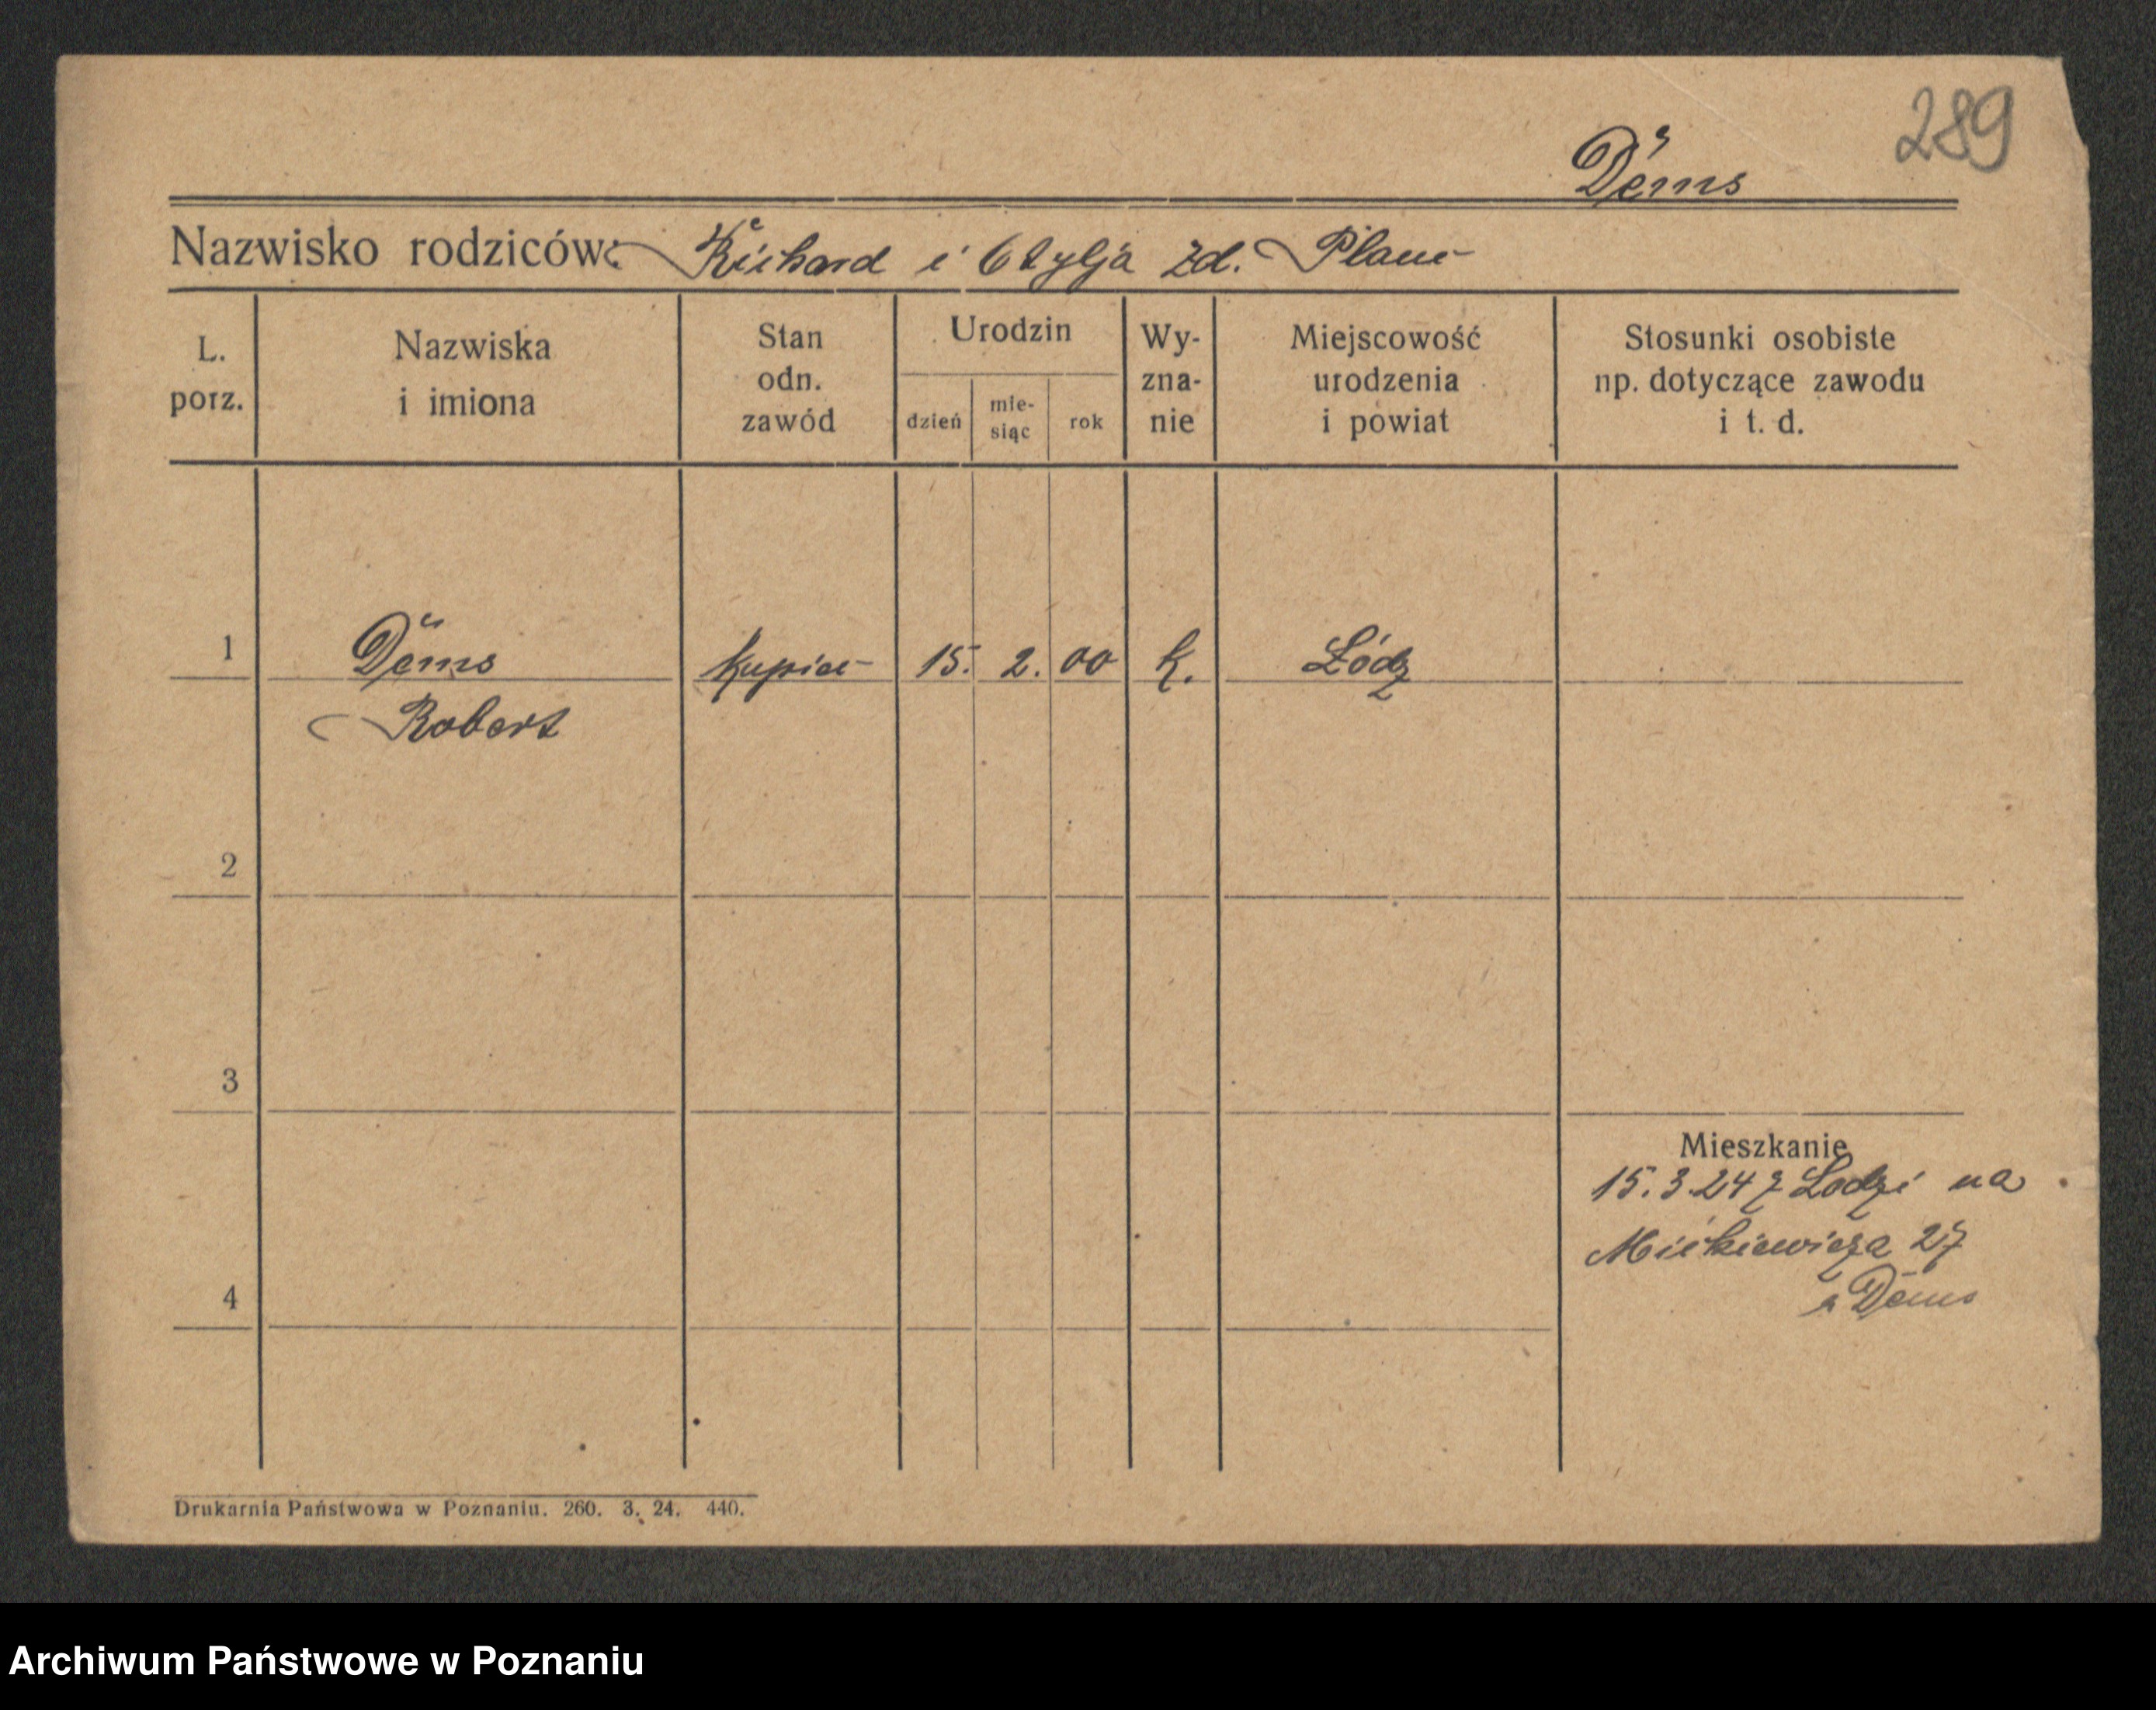 289
Dëms
Nazwisko rodziców: Richard i Otylja zd.
L. porz.
Nazwiska i imiona
Stan odn. zawód
Urodzin
dzień
mie-siąc
rok
Wy-zna-nie
Miejscowość urodzenia i powiat
Stosunki osobiste np. dotyczące zawodu i t. d.
1 Dëms kupiec 15. 2. 00 k. Łódz
Robert
2
3
Mieszkanie
15.3.24 z Lodzi na
Mickiewicza 27
4
Drukarnia Państwowa w Poznaniu. 260. 3. 24. 440.
Archiwum Państwowe w Poznaniu